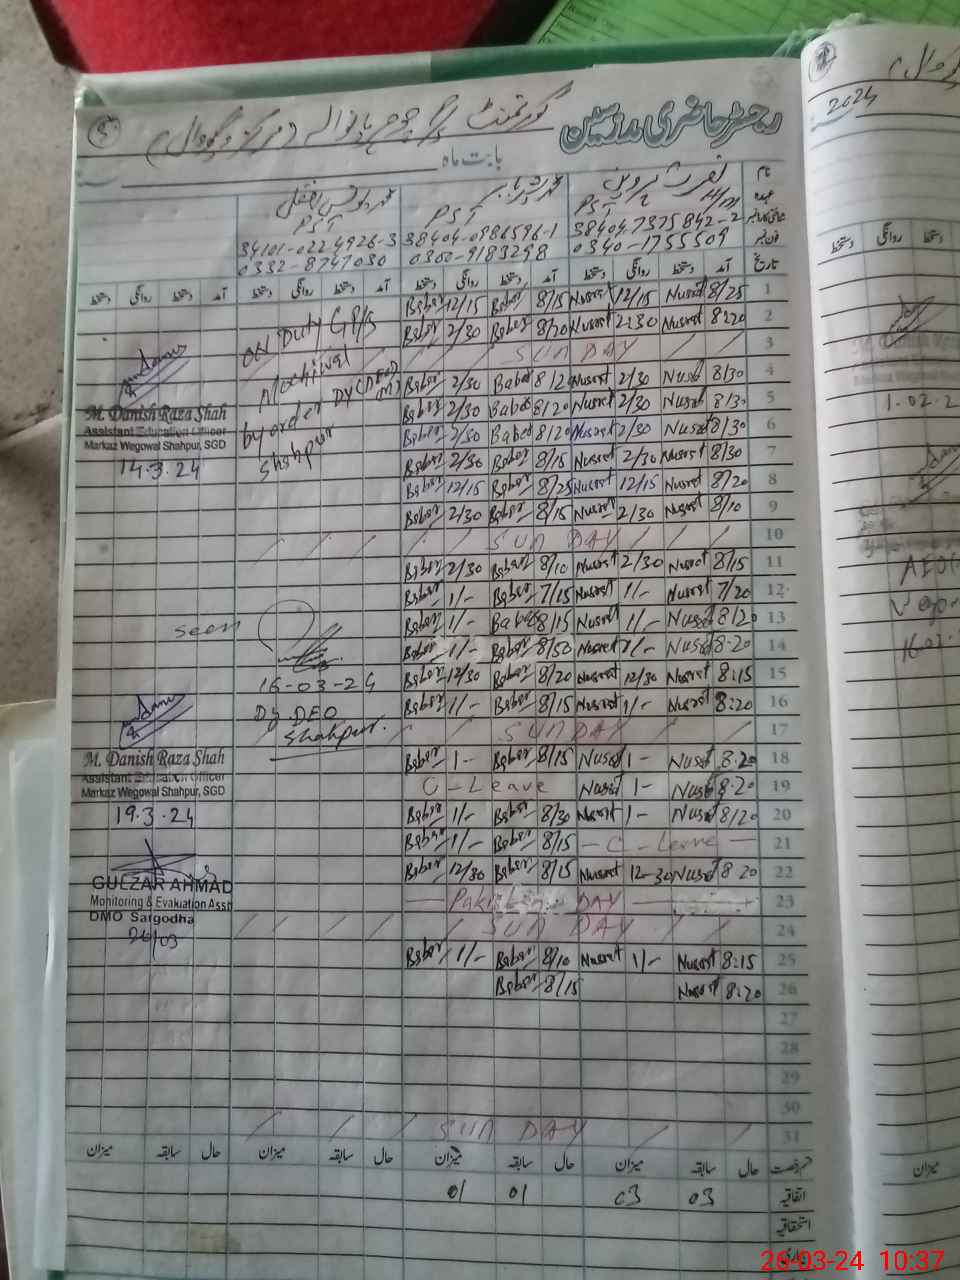 رجسٹر حاضری مدرسین
گورنمنٹ
بابت ماہ
2024
نام
عہدہ
نصرت پروین
PST
PST
PST
38404-7375842-2
38404-0986596-1
34101-0224926-3
0340-1755509
0300-9183298
0332-8747030
تاریخ
آمد دستخط روانگی دستخط آمد دستخط روانگی دستخط آمد دستخط روانگی دستخط آمد دستخط روانگی دستخط
1 8/25 Nusrat 12/15 Nusrat 8/15 Baber 12/15 Baber
2 8:20 Nusrat 2:30 Nusrat 8/20 Baber 2/30 Baber
on Duty
3 SUNDAY
4 8/30 Nusrat 2/30 Nusrat 8/20 Baber 2/30 Baber
5 8/30 Nusrat 2/30 Nusrat 8/20 Baber 2/30 Baber
by order Dy (DEO
6 8/30 Nusrat 2/30 Nusrat 8/20 Baber 2/30 Baber
Shahpur
7 8/30 Nusrat 2/30 Nusrat 8/15 Baber 2/30 Baber
8 8/20 Nusrat 12/15 Nusrat 8/25 Baber 12/15 Baber
9 8/10 Nusrat 2/30 Nusrat 8/15 Baber 2/30 Baber
M. Danish Raza Shah
Assistant Education Officer
Markaz Wegowal Shahpur, SGD
14-3-24
10 SUNDAY
11 8/15 Nusrat 2/30 Nusrat 8/10 Baber 2/30 Baber
12 7/20 Nusrat 1/- Nusrat 7/15 Baber 1/- Baber
13 8/20 Nusrat 1/- Nusrat 8/15 Baber 1/- Baber
14 8-20 Nusrat 1/- Nusrat 8/50 Baber 1/- Baber
15 8:15 Nusrat 12/30 Nusrat 8/20 Baber 12/30 Baber
16 8:20 Nusrat 1/- Nusrat 8/15 Baber 1/- Baber
seen
16-03-24
Dy DEO
Shahpur.
17 SUNDAY
18 8-20 Nusrat 1- Nusrat 8/15 Baber 1- Baber
19 8-20 Nusrat 1- Nusrat C-Leave
20 8/20 Nusrat 1- Nusrat 8/30 Baber 1/- Baber
M. Danish Raza Shah
Assistant Education Officer
Markaz Wegowal Shahpur, SGD
19.3.24
21 — C-Leave — 8/15 Baber 1/- Baber
22 8 20 Nusrat 12-30 Nusrat 8/15 Baber 12/30 Baber
23 Pakistan DAY
24 SUNDAY
GULZAR AHMAD
Monitoring & Evaluation Asst
DMO Sargodha
26/03
25 8:15 Nusrat 1/- Nusrat 8/10 Baber 1/- Baber
26 8:20 Nusrat 8/15 Baber
27
28
29
30
31 SUNDAY
قسم رخصت حال سابقہ میزان حال سابقہ میزان حال سابقہ میزان حال سابقہ میزان
اتفاقیہ 03 03 01 01
استحقاقیہ
میزان
26-03-24 10:37